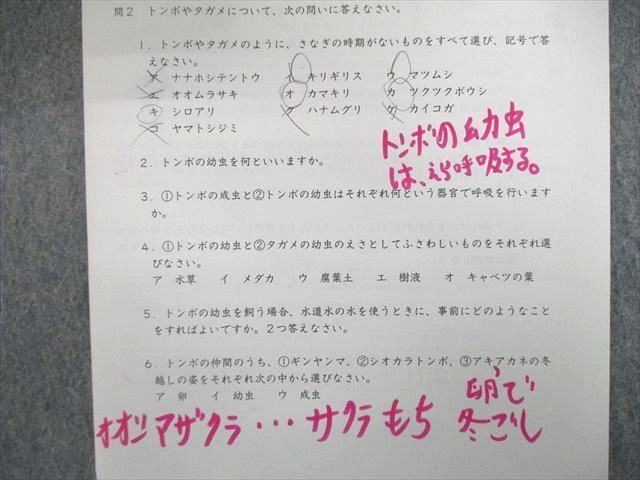 問2 トンボやタガメについて、次の問いに答えなさい。
1．トンボやタガメのように、さなぎの時期がないものをすべて選び、記号で答
えなさい。
ア ナナホシテントウ イ キリギリス ウ マツムシ
エ オオムラサキ オ カマキリ カ ツクツクボウシ
キ シロアリ ク ハナムグリ ケ カイコガ
コ ヤマトシジミ
トンボの幼虫
は、えら呼吸する。
2．トンボの幼虫を何といいますか。
3．①トンボの成虫と②トンボの幼虫はそれぞれ何という器官で呼吸を行います
か。
4．①トンボの幼虫と②タガメの幼虫のえさとしてふさわしいものをそれぞれ選
びなさい。
ア 水草 イ メダカ ウ 腐葉土 エ 樹液 オ キャベツの葉
5．トンボの幼虫を飼う場合、水道水の水を使うときに、事前にどのようなこと
をすればよいですか。2つ答えなさい。
6．トンボの仲間のうち、①ギンヤンマ、②シオカラトンボ、③アキアカネの冬
越しの姿をそれぞれ次の中から選びなさい。
ア 卵 イ 幼虫 ウ 成虫
卵で
冬ごし
オオシマザクラ・・・サクラもち